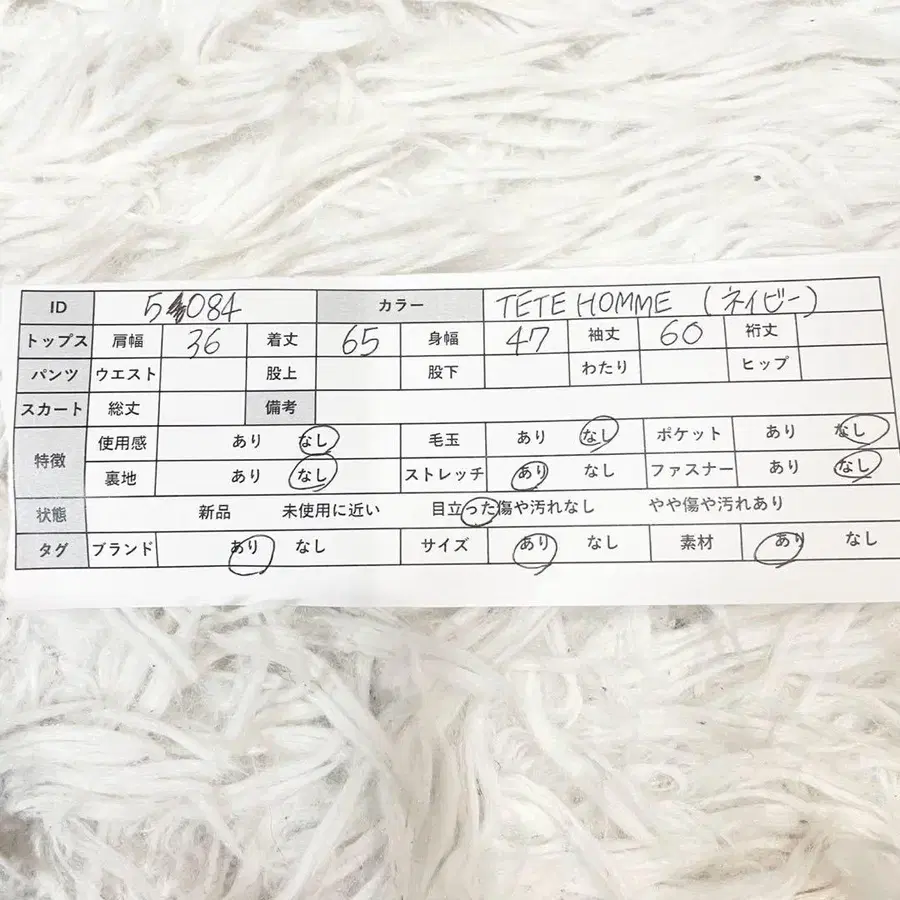 ID 5084 カラー TETE HOMME (ネイビー)
トップス 肩幅 36 着丈 65 身幅 47 袖丈 60 裄丈
パンツ ウエスト 股上 股下 わたり ヒップ
スカート 総丈 備考
特徴 使用感 あり なし 毛玉 あり なし ポケット あり なし
裏地 あり なし ストレッチ あり なし ファスナー あり なし
状態 新品 未使用に近い 目立った傷や汚れなし やや傷や汚れあり
タグ ブランド あり なし サイズ あり なし 素材 あり なし